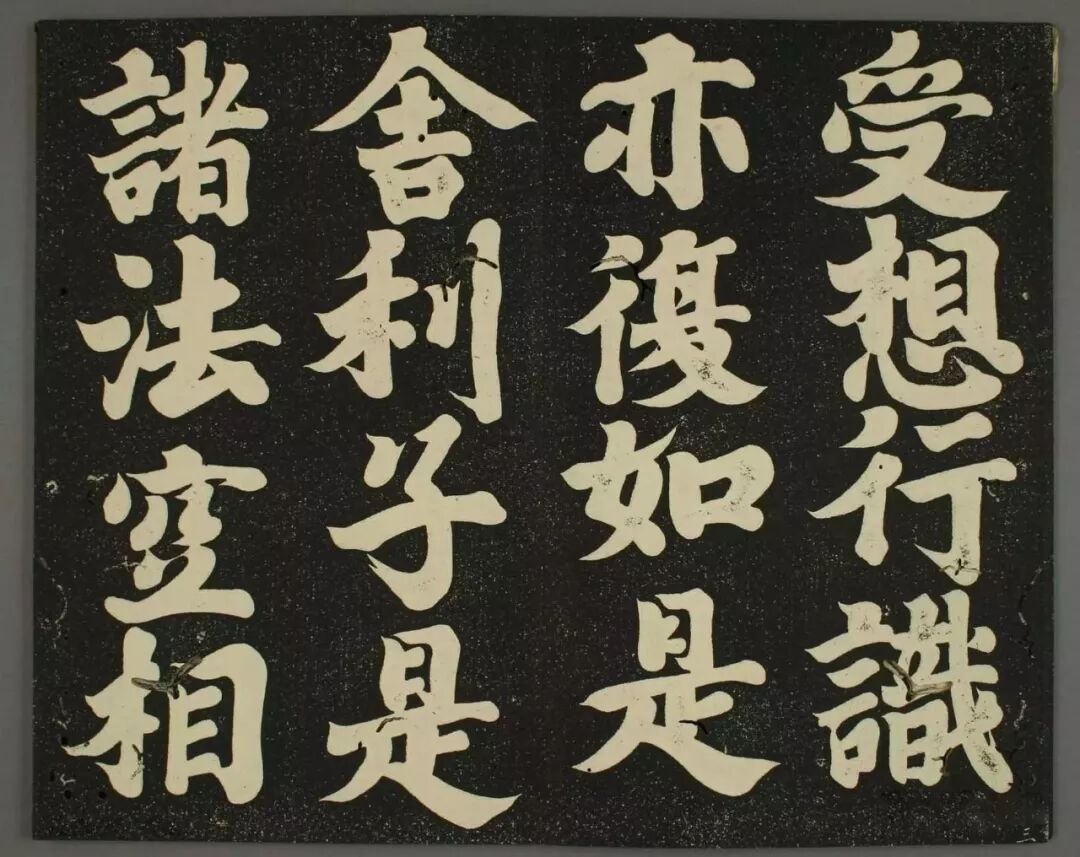 受想行識
亦復如是
舍利子是
諸法空相
三